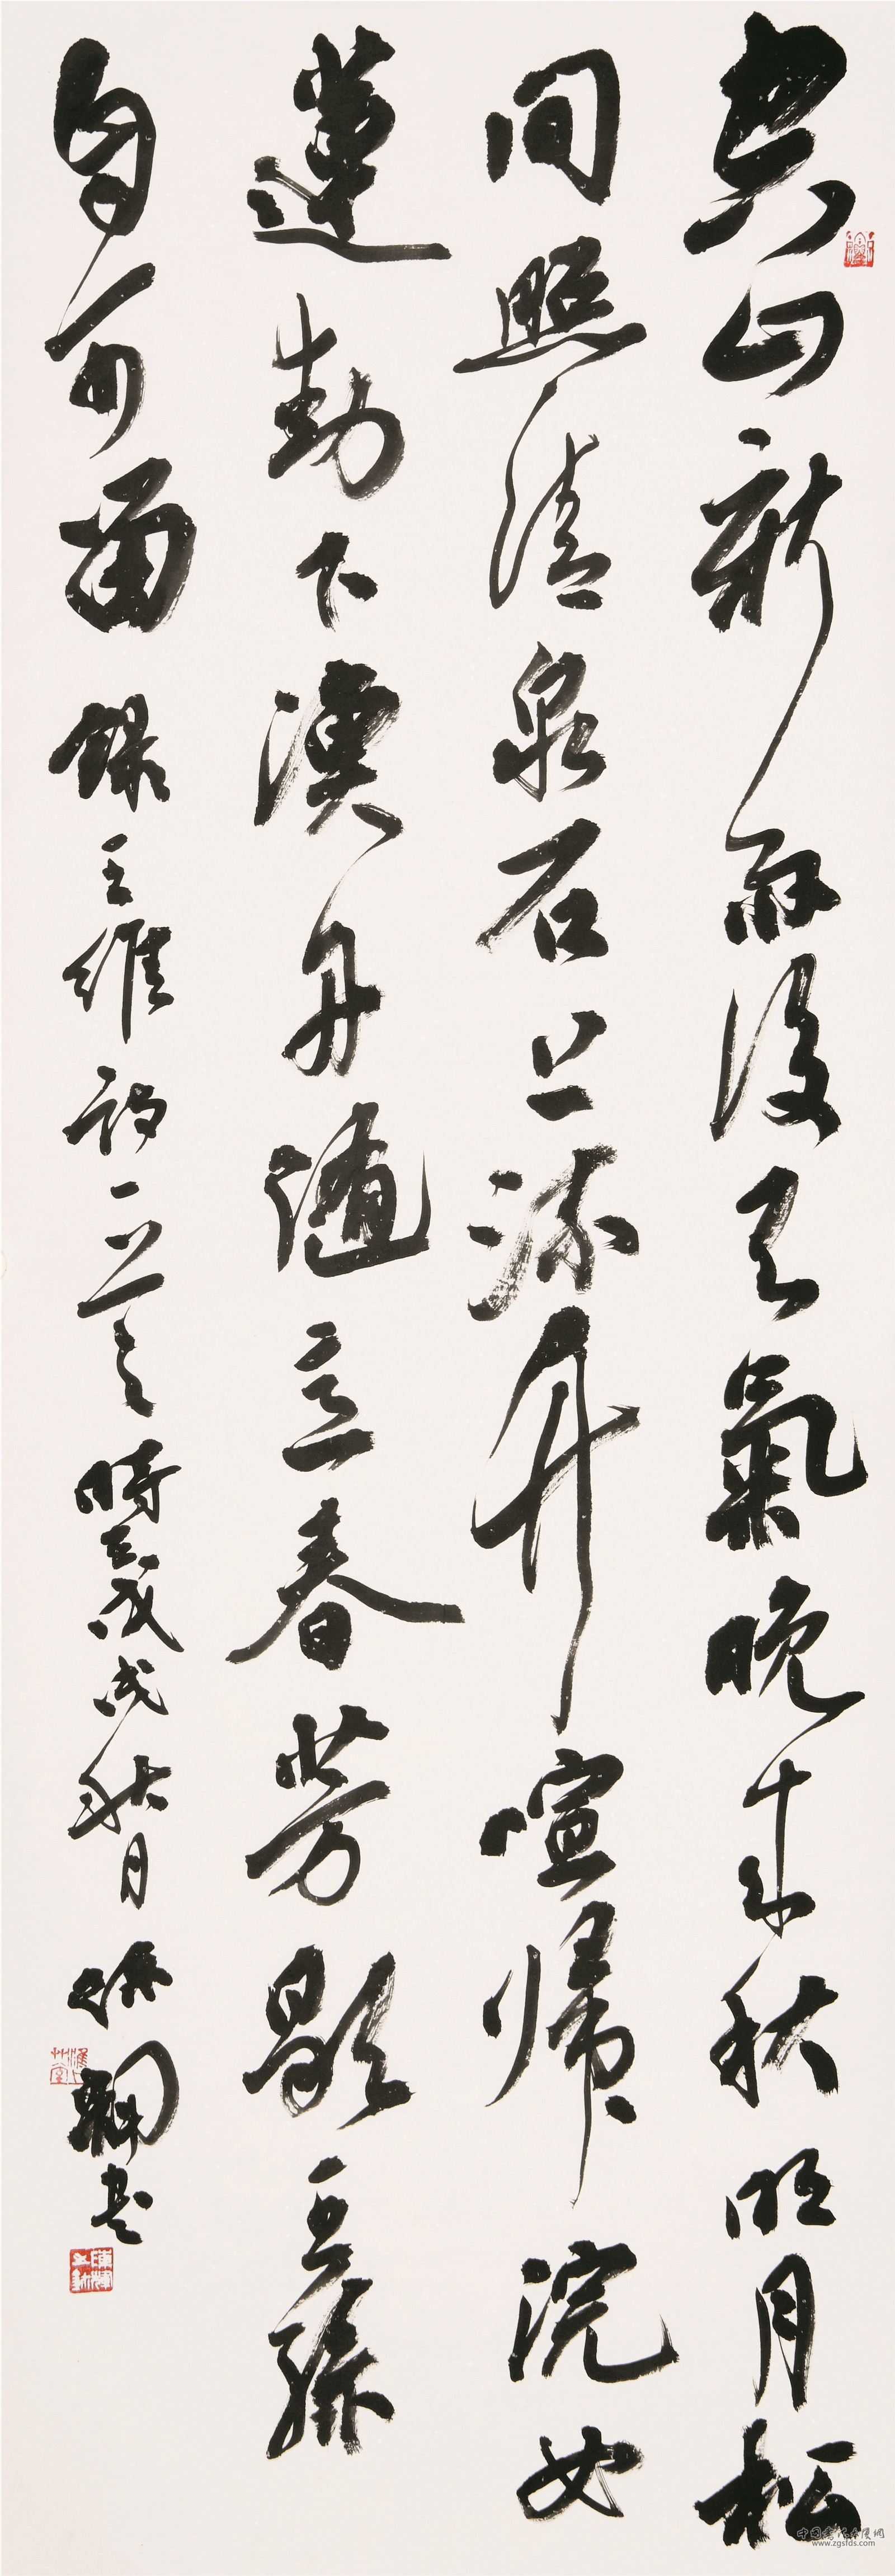 空山新雨後天氣晚來秋明月松
間照清泉石上流竹喧歸浣女
蓮動下漁舟隨意春芳歇王孫
自可留 錄王維詩一首 時在戊戌秋月 書
www.zgsfds.com